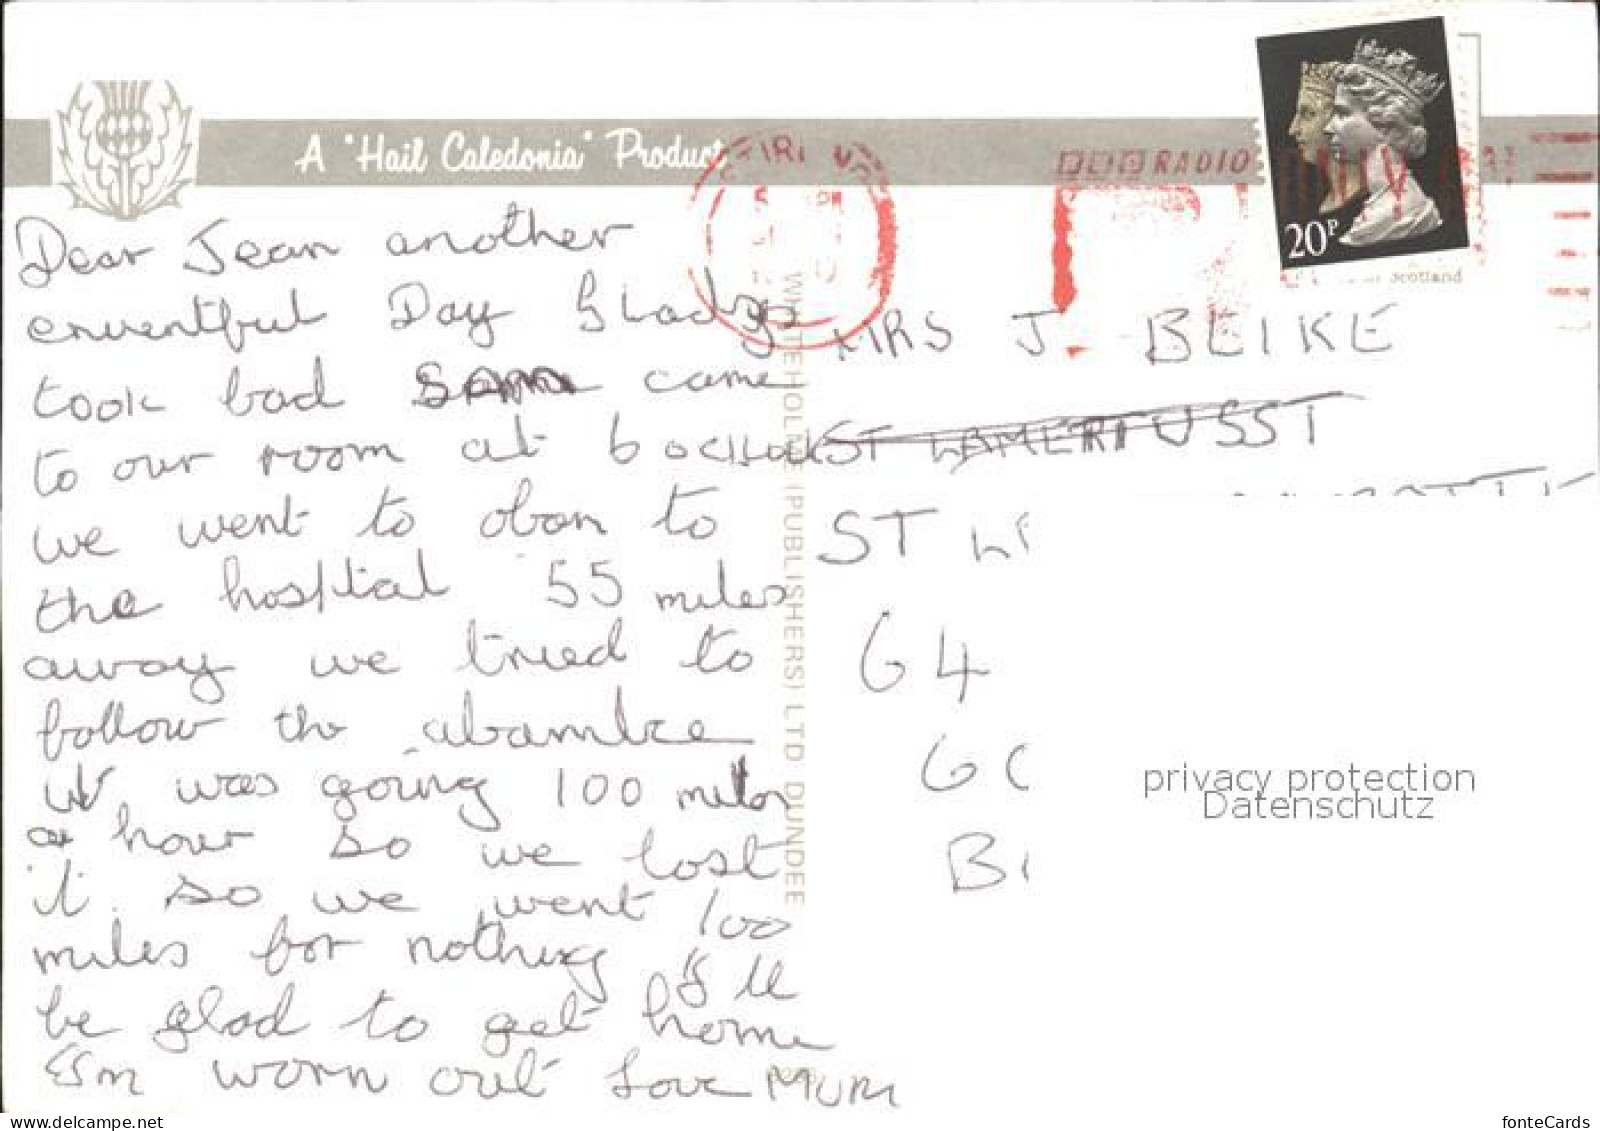 A "Hail Caledonia" Product
BBC RADIO
20P
Scotland
Dear Jean another
enventful Day Gladys
took bad Sam came
to our room at 6 oclock
we went to oban to
the hospital 55 miles
away we tried to
follow the abamlce
it was going 100 miles
a hour so we lost
it. so we went 100
miles for nothing I'll
be glad to get home
I'm worn out Love MUM
WHITEHOLME (PUBLISHERS) LTD DUNDEE
MRS J. BLIKE
ST
ST
G4
privacy protection
Datenschutz
delcampe.net
fonteCards